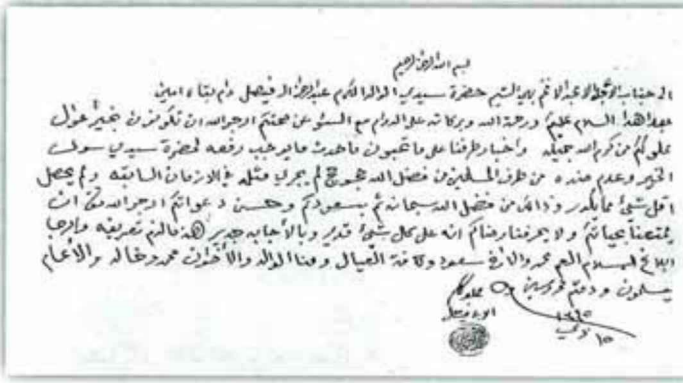 بسم الله الرحمن الرحيم
الى جناب الاجل الامجد الافخم بهي الشيم حضرة سيدي الوالد المكرم عبدالرحمن ال فيصل دام بقاه امين
بعد اهدا السلام عليكم ورحمة الله وبركاته على الدوام مع السئوال عن صحتكم ارجو الله ان تكونون بخير احوال
مملوككم من كرم الله جميله واخبار طرفنا على ما تحبون ما حدث ما يوجب رفعه لحضرة سيدي سوى
الخير وعدم ضده من طرف المسلمين من فضل الله حجو حج لم يجري مثله في الازمان السابقه ولم يحصل
اقل شيء مما يكدر وذالك من فضل الله سبحانه ثم بسعودكم وحسن دعواتكم ارجو الله ان
يمتعنا بحياتكم ولا يحرمنا رضاكم انه على كل شيء قدير وبالاجابه جدير هذا مالزم تعريفه وارجا
ابلاغ السلام العم محمد والاخ سعود وكافة العيال ومنا الوالد والأخوان محمد وخالد والأعمام
يسلمون ودمتم محروسين
مملوككم
الابن فيصل
١٥